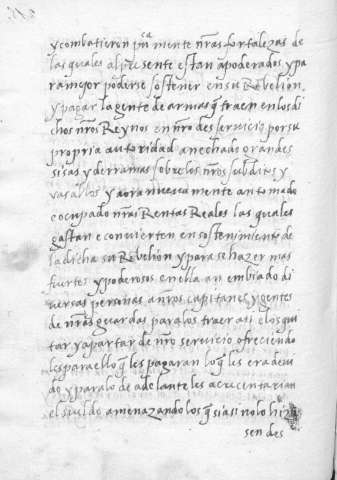 y combatieron pu^ca mente nr̃as fortalezas de
las quales al presente estan apoderados y pa
ra mejor poderse sostener en su Rebelion
y pagar la gente de armas q̃ traen en los di
chos nr̃os Reynos en nr̃o deservicio por su
propria autoridad an echado grandes
sisas y derramas sobre los nr̃os subditos y
vasallos y aora nuevamente an tomado
e ocupado nr̃as Rentas Reales las quales
gastan e convierten en sostenimiento de
la dicha su Rebelion y para se hazer mas
fuertes y poderosos en ella an embiado di
versas personas a nr̃os capitanes y gentes
de nr̃as guardas para los traer a ti e los qui
tar y apartar de nr̃o servicio ofreciendo
les para ello q̃ les pagaran lo q̃ les era devi
do y para lo de adelante les acrecentarian
el sueldo amenazandolos q̃ si asi no lo hizie
sen des